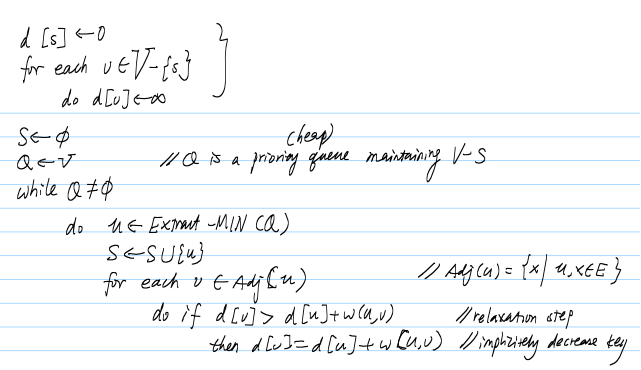 d [s] ← 0
for each v ∈ V - {s}
do d[v] ← ∞
S ← ϕ
(heap)
Q ← V // Q is a priority queue maintaining V-S
while Q ≠ ϕ
do u ← Extract-MIN (Q)
S ← S ∪ {u}
for each v ∈ Adj[u) // Adj(u) = {x | u,x∈E}
do if d[v] > d[u] + w(u,v) // relaxation step
then d[v] = d[u] + w[u,v) // implizitely decrease key